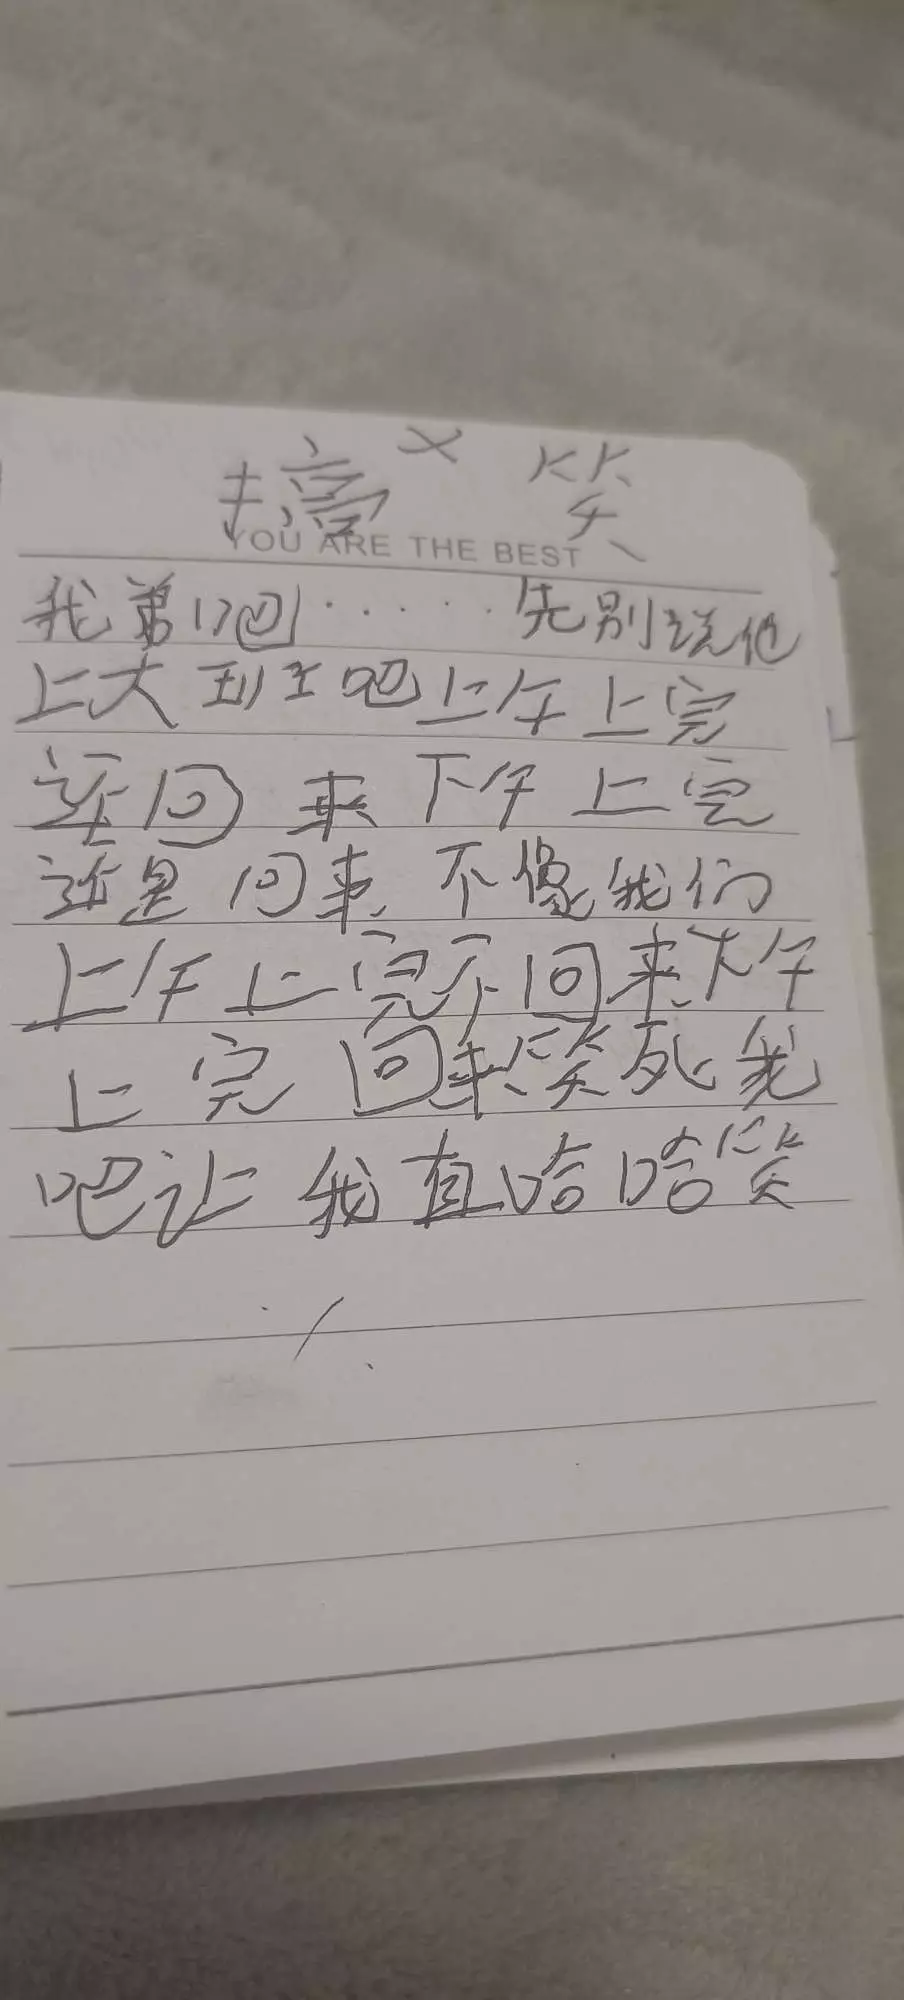 搞 笑
YOU ARE THE BEST
我弟吧·····先别说他
上大班吧上午上完
还回来下午上完
还是回来不像我们
上午上完不回来下午
上完回来笑死我
吧让我直哈哈笑